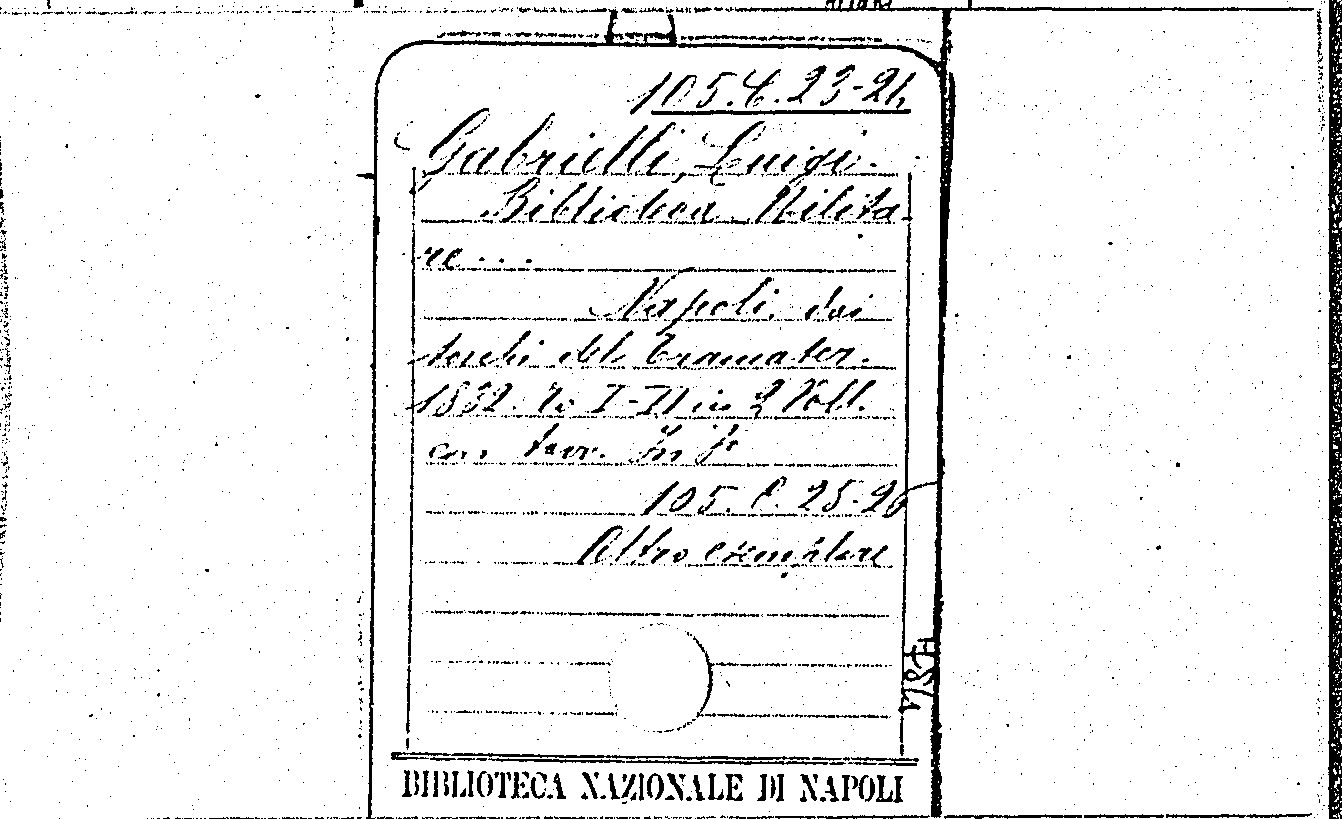 105.C.23-24
Gabrielli, Luigi.
Biblioteca Milita-
re...
Napoli, dai
torchi del Tramater.
1832. To I-II in 2 Voll.
con tavv. In f°
105. C. 25-26
Altro esemplare
BIBLIOTECA NAZIONALE DI NAPOLI